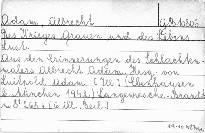 Adam, Albrecht
Des Krieges Grauen und des Lebens
Lust.
Aus den Erinnerungen des Schlachten-
malers Albrecht Adam. Hrsg. von
Luitpold Adam. (Ill.) (Ebenhausen
b. München 1942:) Langewiesche-Brandt.